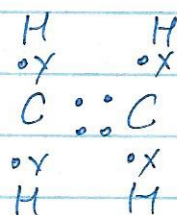 H H
•x •x
C :: C
•x •x
H H